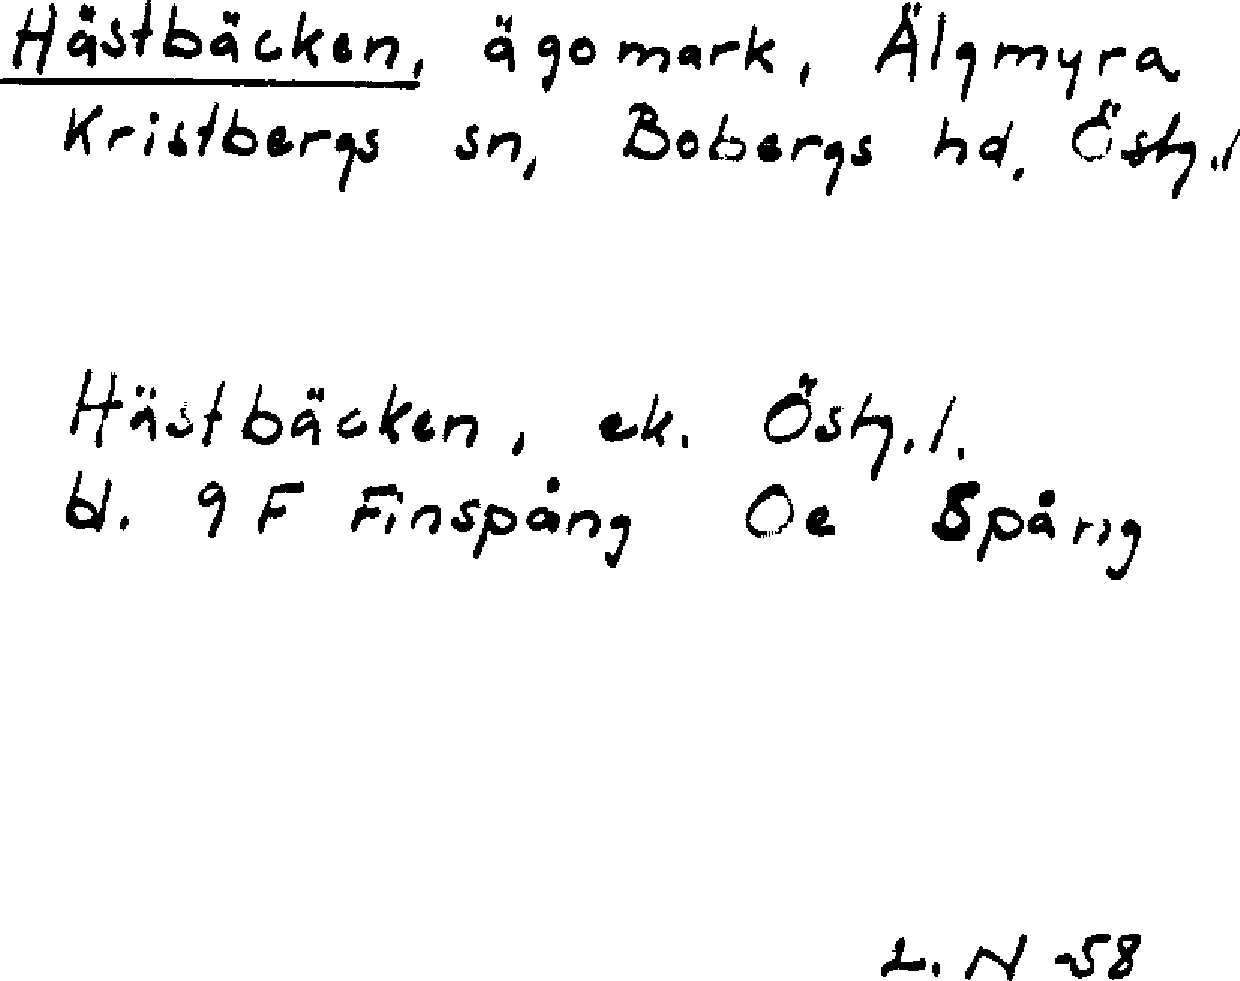 Hästbäcken, ägomark, Älgmyra
Kristbergs sn, Bobergs hd. Östg.l
Hästbäcken, ek. Östg.l.
bl. 9 F Finspång Oe Spång
L. N -58